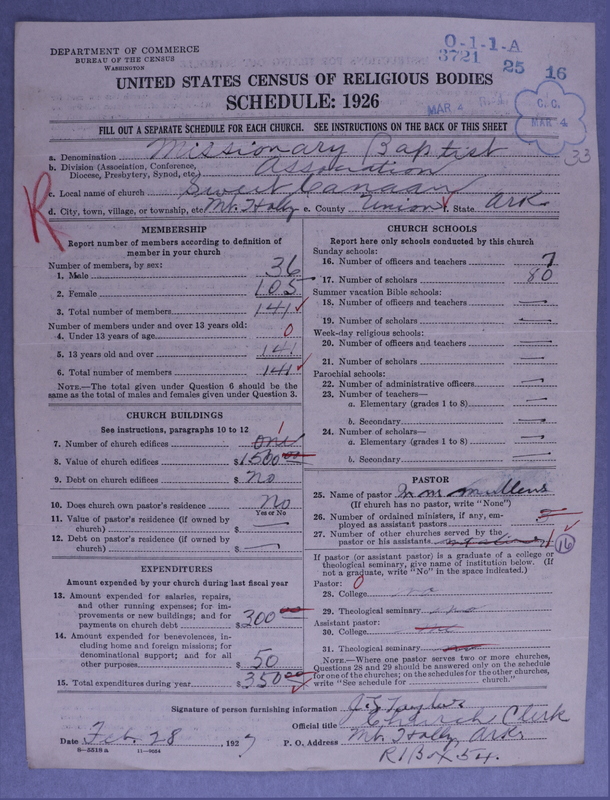 DEPARTMENT OF COMMERCE
BUREAU OF THE CENSUS
WASHINGTON
O-1-1-A
3721 25 16
UNITED STATES CENSUS OF RELIGIOUS BODIES
SCHEDULE: 1926
MAR 4
C. C.
MAR 4
FILL OUT A SEPARATE SCHEDULE FOR EACH CHURCH. SEE INSTRUCTIONS ON THE BACK OF THIS SHEET
33
a. Denomination Missionary Baptist
b. Division (Association, Conference, Diocese, Presbytery, Synod, etc.) Association
c. Local name of church Sweet Canaan
d. City, town, village, or township, etc. Mt. Holly e. County Union f. State Ark
R
MEMBERSHIP
Report number of members according to definition of
member in your church
Number of members, by sex:
1. Male 36
2. Female 105
3. Total number of members 141
Number of members under and over 13 years old:
4. Under 13 years of age 0
5. 13 years old and over 141
6. Total number of members 141
NOTE.—The total given under Question 6 should be the
same as the total of males and females given under Question 3.
CHURCH BUILDINGS
See instructions, paragraphs 10 to 12
1
7. Number of church edifices one
8. Value of church edifices $1500 00
9. Debt on church edifices $ No
10. Does church own pastor's residence No
Yes or No
11. Value of pastor's residence (if owned by
church) $ —
12. Debt on pastor's residence (if owned by
church) $ —
EXPENDITURES
Amount expended by your church during last fiscal year
13. Amount expended for salaries, repairs,
and other running expenses; for im-
provements or new buildings; and for
payments on church debt $300 00
14. Amount expended for benevolences, in-
cluding home and foreign missions; for
denominational support; and for all
other purposes $ 50
15. Total expenditures during year $350 00
CHURCH SCHOOLS
Report here only schools conducted by this church
Sunday schools:
16. Number of officers and teachers 7
17. Number of scholars 80
Summer vacation Bible schools:
18. Number of officers and teachers —
19. Number of scholars —
Week-day religious schools:
20. Number of officers and teachers —
21. Number of scholars —
Parochial schools:
22. Number of administrative officers —
23. Number of teachers—
a. Elementary (grades 1 to 8) —
b. Secondary —
24. Number of scholars—
a. Elementary (grades 1 to 8) —
b. Secondary —
PASTOR
25. Name of pastor M. M. Mullens
(If church has no pastor, write "None")
26. Number of ordained ministers, if any, em-
ployed as assistant pastors
27. Number of other churches served by the
pastor or his assistants 1
16
If pastor (or assistant pastor) is a graduate of a college or
theological seminary, give name of institution below. (If
not a graduate, write "No" in the space indicated.)
Pastor: 0
28. College no
29. Theological seminary no
Assistant pastor:
30. College no
31. Theological seminary no
NOTE.—Where one pastor serves two or more churches,
Questions 28 and 29 should be answered only on the schedule
for one of the churches; on the schedules for the other churches,
write "See schedule for church."
Signature of person furnishing information J. S. Taylor
Official title Church Clerk
Date Feb. 28, 1927 P. O. Address Mt. Holly Ark.
R 1 Box 54.
8—5518 a 11—9024